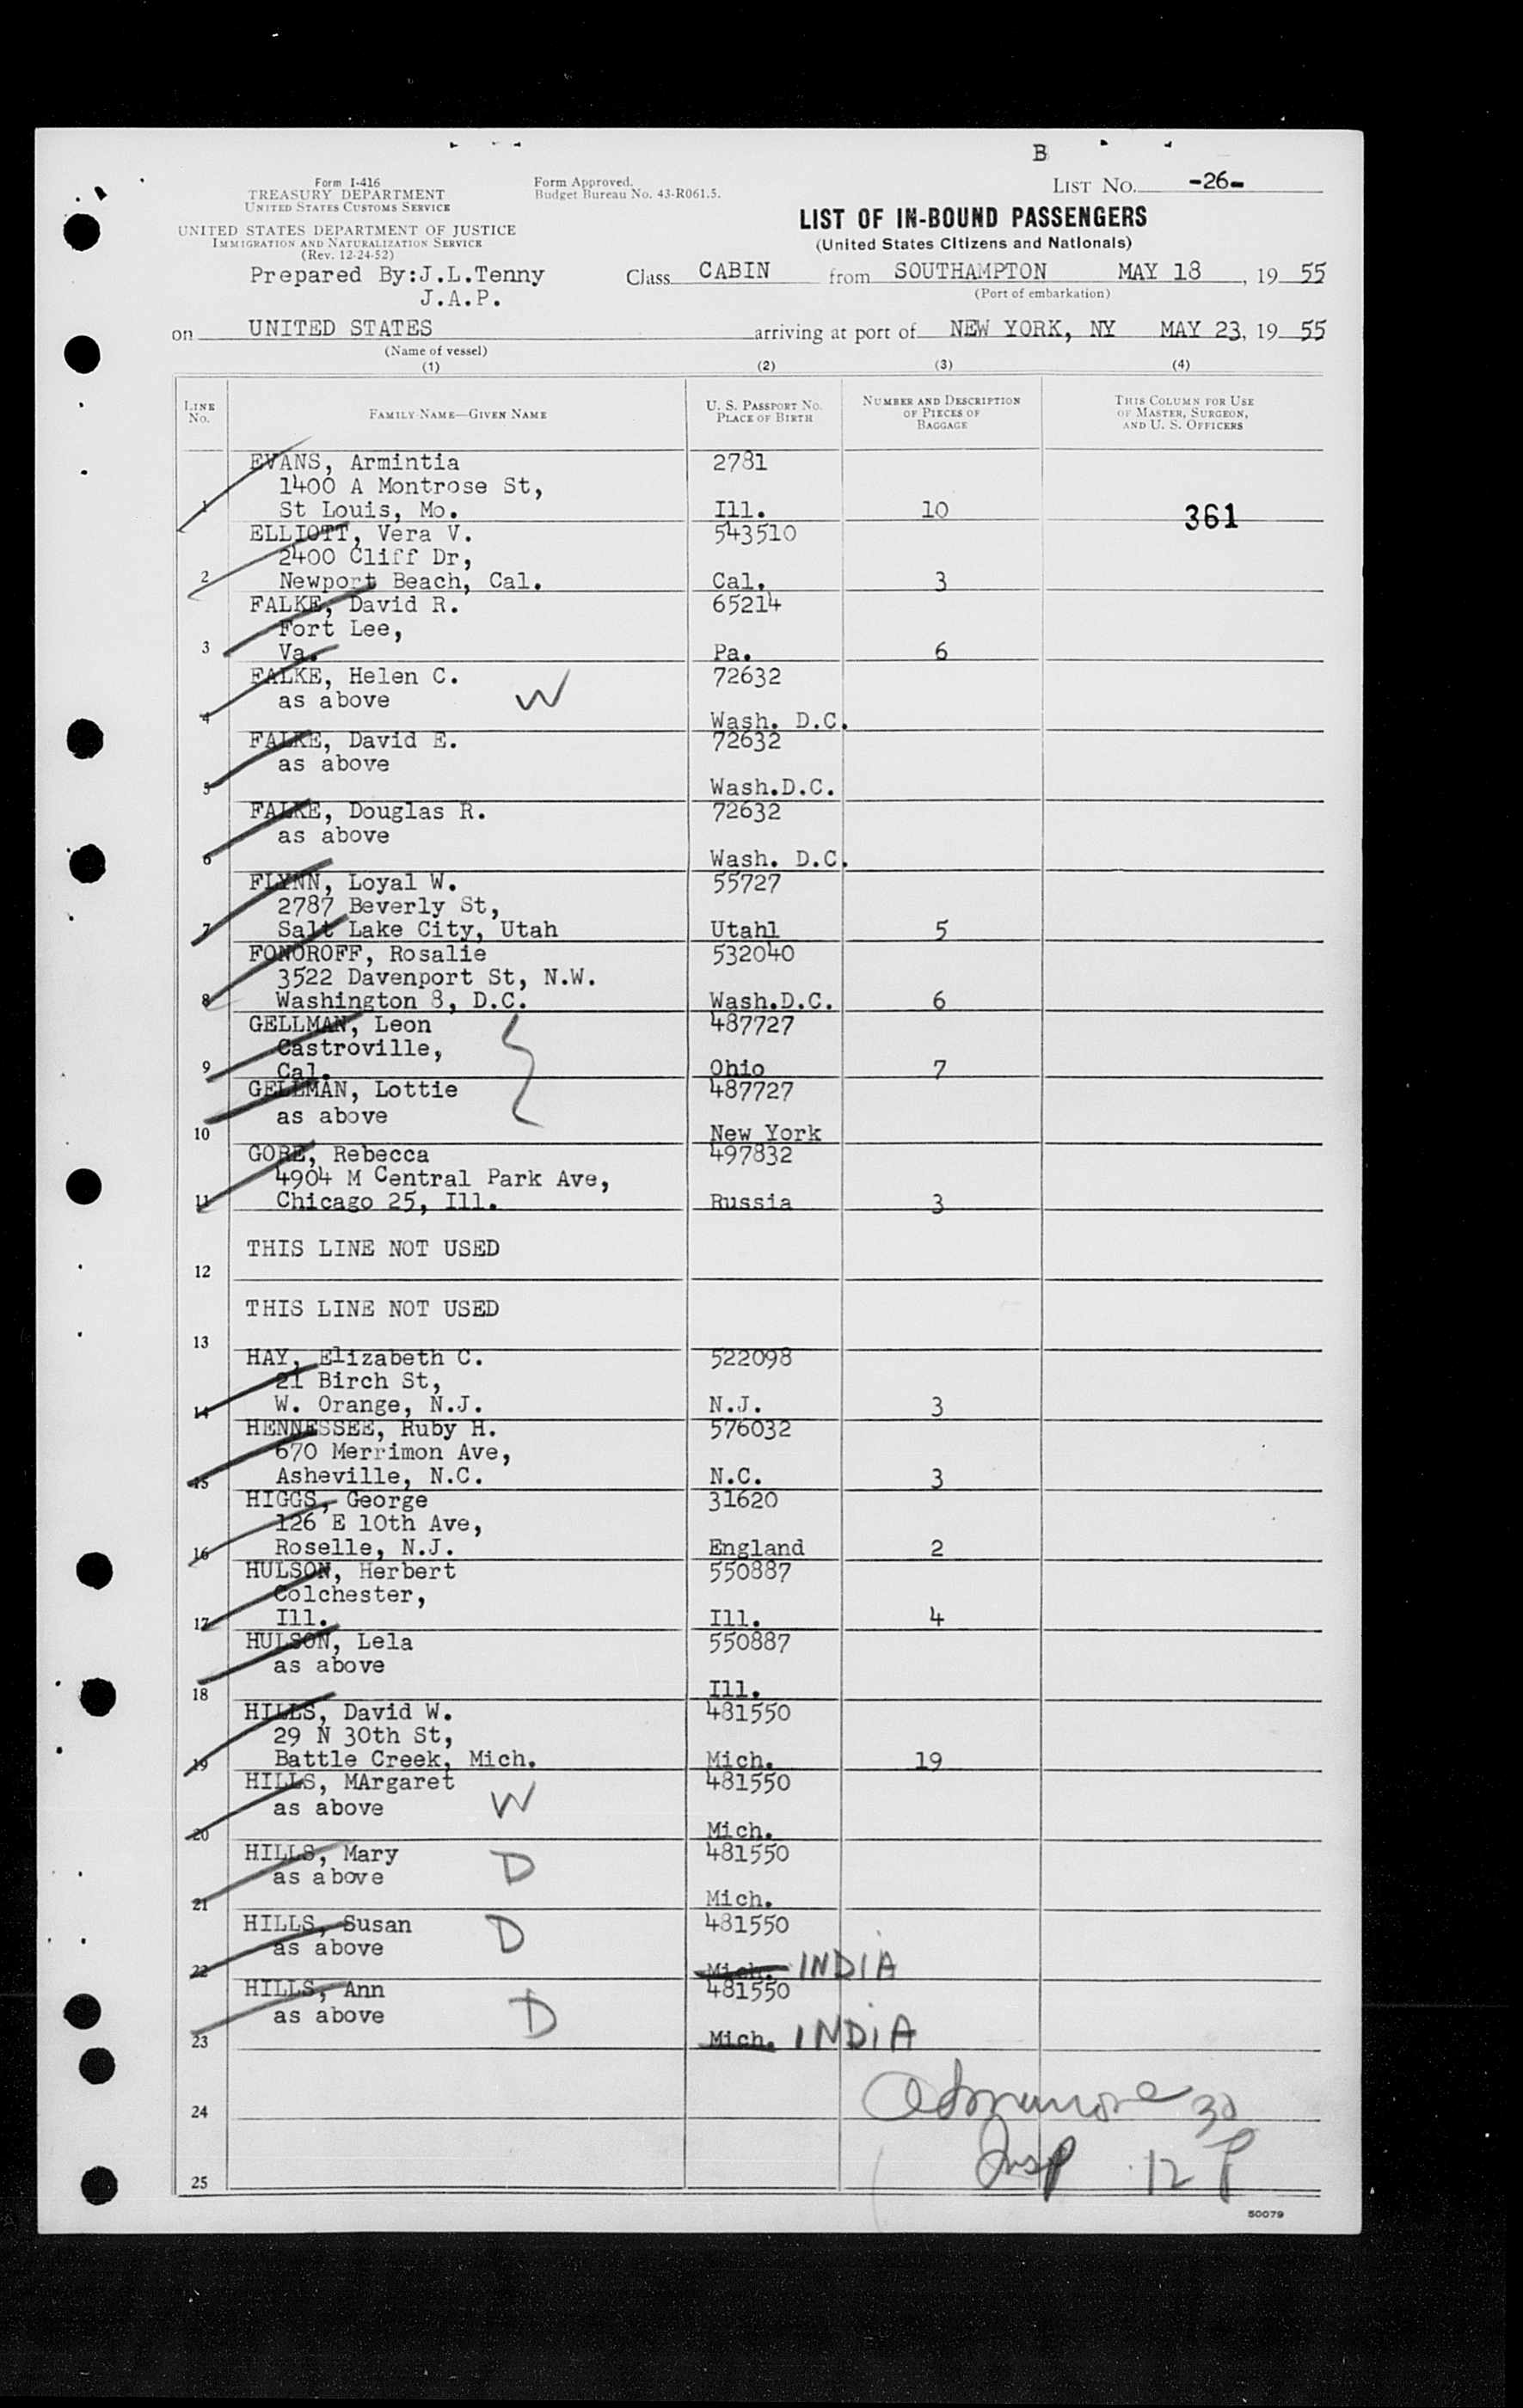 B
Form I-416
TREASURY DEPARTMENT
UNITED STATES CUSTOMS SERVICE
UNITED STATES DEPARTMENT OF JUSTICE
IMMIGRATION AND NATURALIZATION SERVICE
(Rev. 12-24-52)
Form Approved.
Budget Bureau No. 43-R061.5.
LIST NO. -26-
LIST OF IN-BOUND PASSENGERS
(United States Citizens and Nationals)
Prepared By:J.L.Tenny
J.A.P.
Class CABIN from SOUTHAMPTON MAY 18, 19 55
(Port of embarkation)
on UNITED STATES arriving at port of NEW YORK, NY MAY 23, 19 55
(Name of vessel)
(1) (2) (3) (4)
LINE NO.
FAMILY NAME—GIVEN NAME
U. S. PASSPORT NO.
PLACE OF BIRTH
NUMBER AND DESCRIPTION
OF PIECES OF
BAGGAGE
THIS COLUMN FOR USE
OF MASTER, SURGEON,
AND U. S. OFFICERS
EVANS, Armintia 2781
1400 A Montrose St,
1 St Louis, Mo. Ill. 10 361
ELLIOTT, Vera V. 543510
2400 Cliff Dr,
2 Newport Beach, Cal. Cal. 3
FALKE, David R. 65214
Fort Lee,
3 Va. Pa. 6
FALKE, Helen C. 72632
as above W
4 Wash. D.C.
FALKE, David E. 72632
as above
5 Wash.D.C.
FALKE, Douglas R. 72632
as above
6 Wash. D.C.
FLYNN, Loyal W. 55727
2787 Beverly St,
7 Salt Lake City, Utah Utahl 5
FONOROFF, Rosalie 532040
3522 Davenport St, N.W.
8 Washington 8, D.C. Wash.D.C. 6
GELLMAN, Leon 487727
Castroville,
9 Cal. Ohio 7
GELLMAN, Lottie 487727
as above
10 New York
GORE, Rebecca 497832
4904 M Central Park Ave,
11 Chicago 25, Ill. Russia 3
THIS LINE NOT USED
12
THIS LINE NOT USED
13
HAY, Elizabeth C. 522098
21 Birch St,
14 W. Orange, N.J. N.J. 3
HENNESSEE, Ruby H. 576032
670 Merrimon Ave,
15 Asheville, N.C. N.C. 3
HIGGS, George 31620
126 E 10th Ave,
16 Roselle, N.J. England 2
HULSON, Herbert 550887
Colchester,
17 Ill. Ill. 4
HULSON, Lela 550887
as above
18 Ill.
HILLS, David W. 481550
29 N 30th St,
19 Battle Creek, Mich. Mich. 19
HILLS, MArgaret 481550
as above W
20 Mich.
HILLS, Mary 481550
as above D
21 Mich.
HILLS, Susan 481550
as above D
22 Mich. INDIA
HILLS, Ann 481550
as above D
23 Mich. INDIA
24
Insp 12 P
25
50079